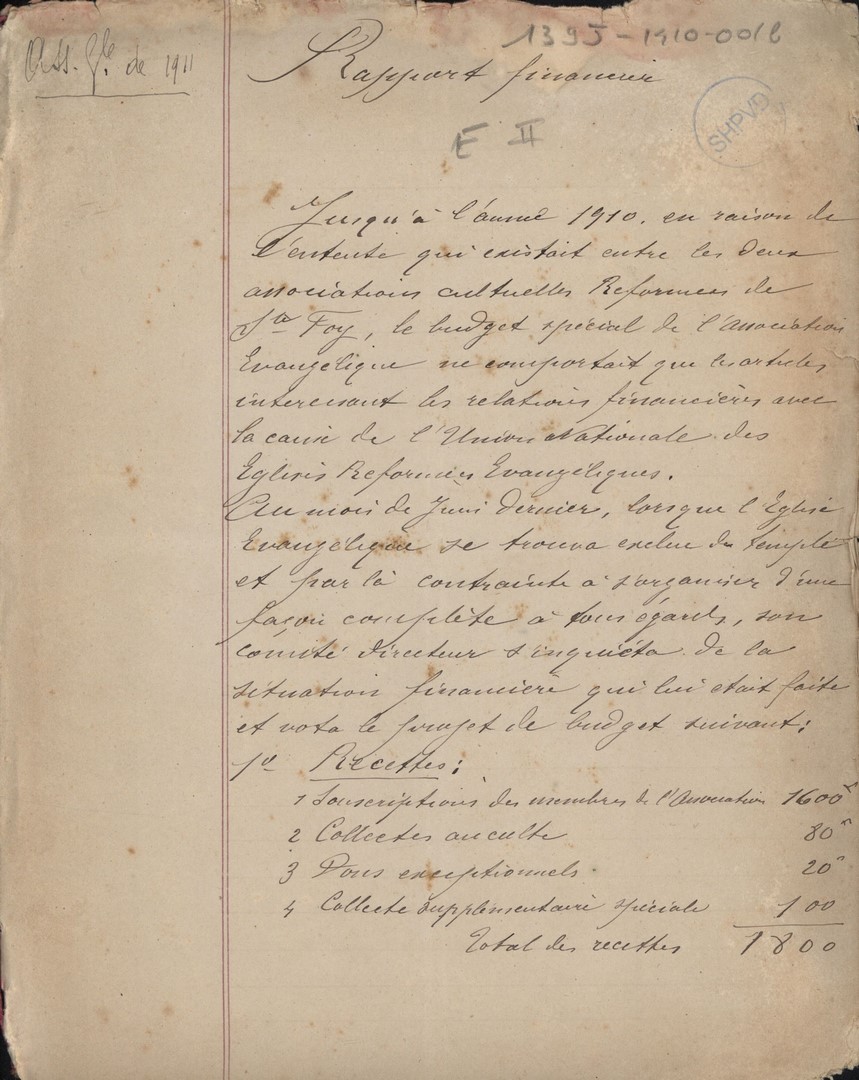 1395-1910-001b
Ass. Gle de 1911
Rapport financier
SHPVD
E II
Jusqu'à l'année 1910. en raison de
l'entente qui existait entre les deux
associations cultuelles Reformées de
Ste Foy, le budget spécial de l'Association
Evangélique ne comportait que les articles
interessant les relations financières avec
la caisse de l'Union Nationale des
Eglises Reformées Evangéliques.
Au mois de Juin dernier, lorsque l'Eglise
Evangélique se trouva exclue du temple
et par là contrainte à s'organiser d'une
façon complète à tous égards, son
comité directeur s'inquiéta de la
situation financière qui lui était faite
et vota le projet de budget suivant:
1º Recettes:
1 Souscriptions des membres de l'Association 1600 f
2 Collectes au culte 80 "
3 Dons exceptionnels. 20 "
4 Collecte supplémentaire spéciale 100
Total des recettes 1800